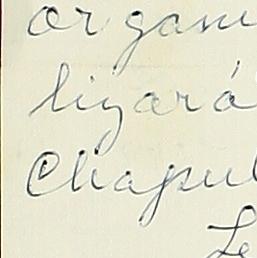 organi
lizará
Chapul
Le